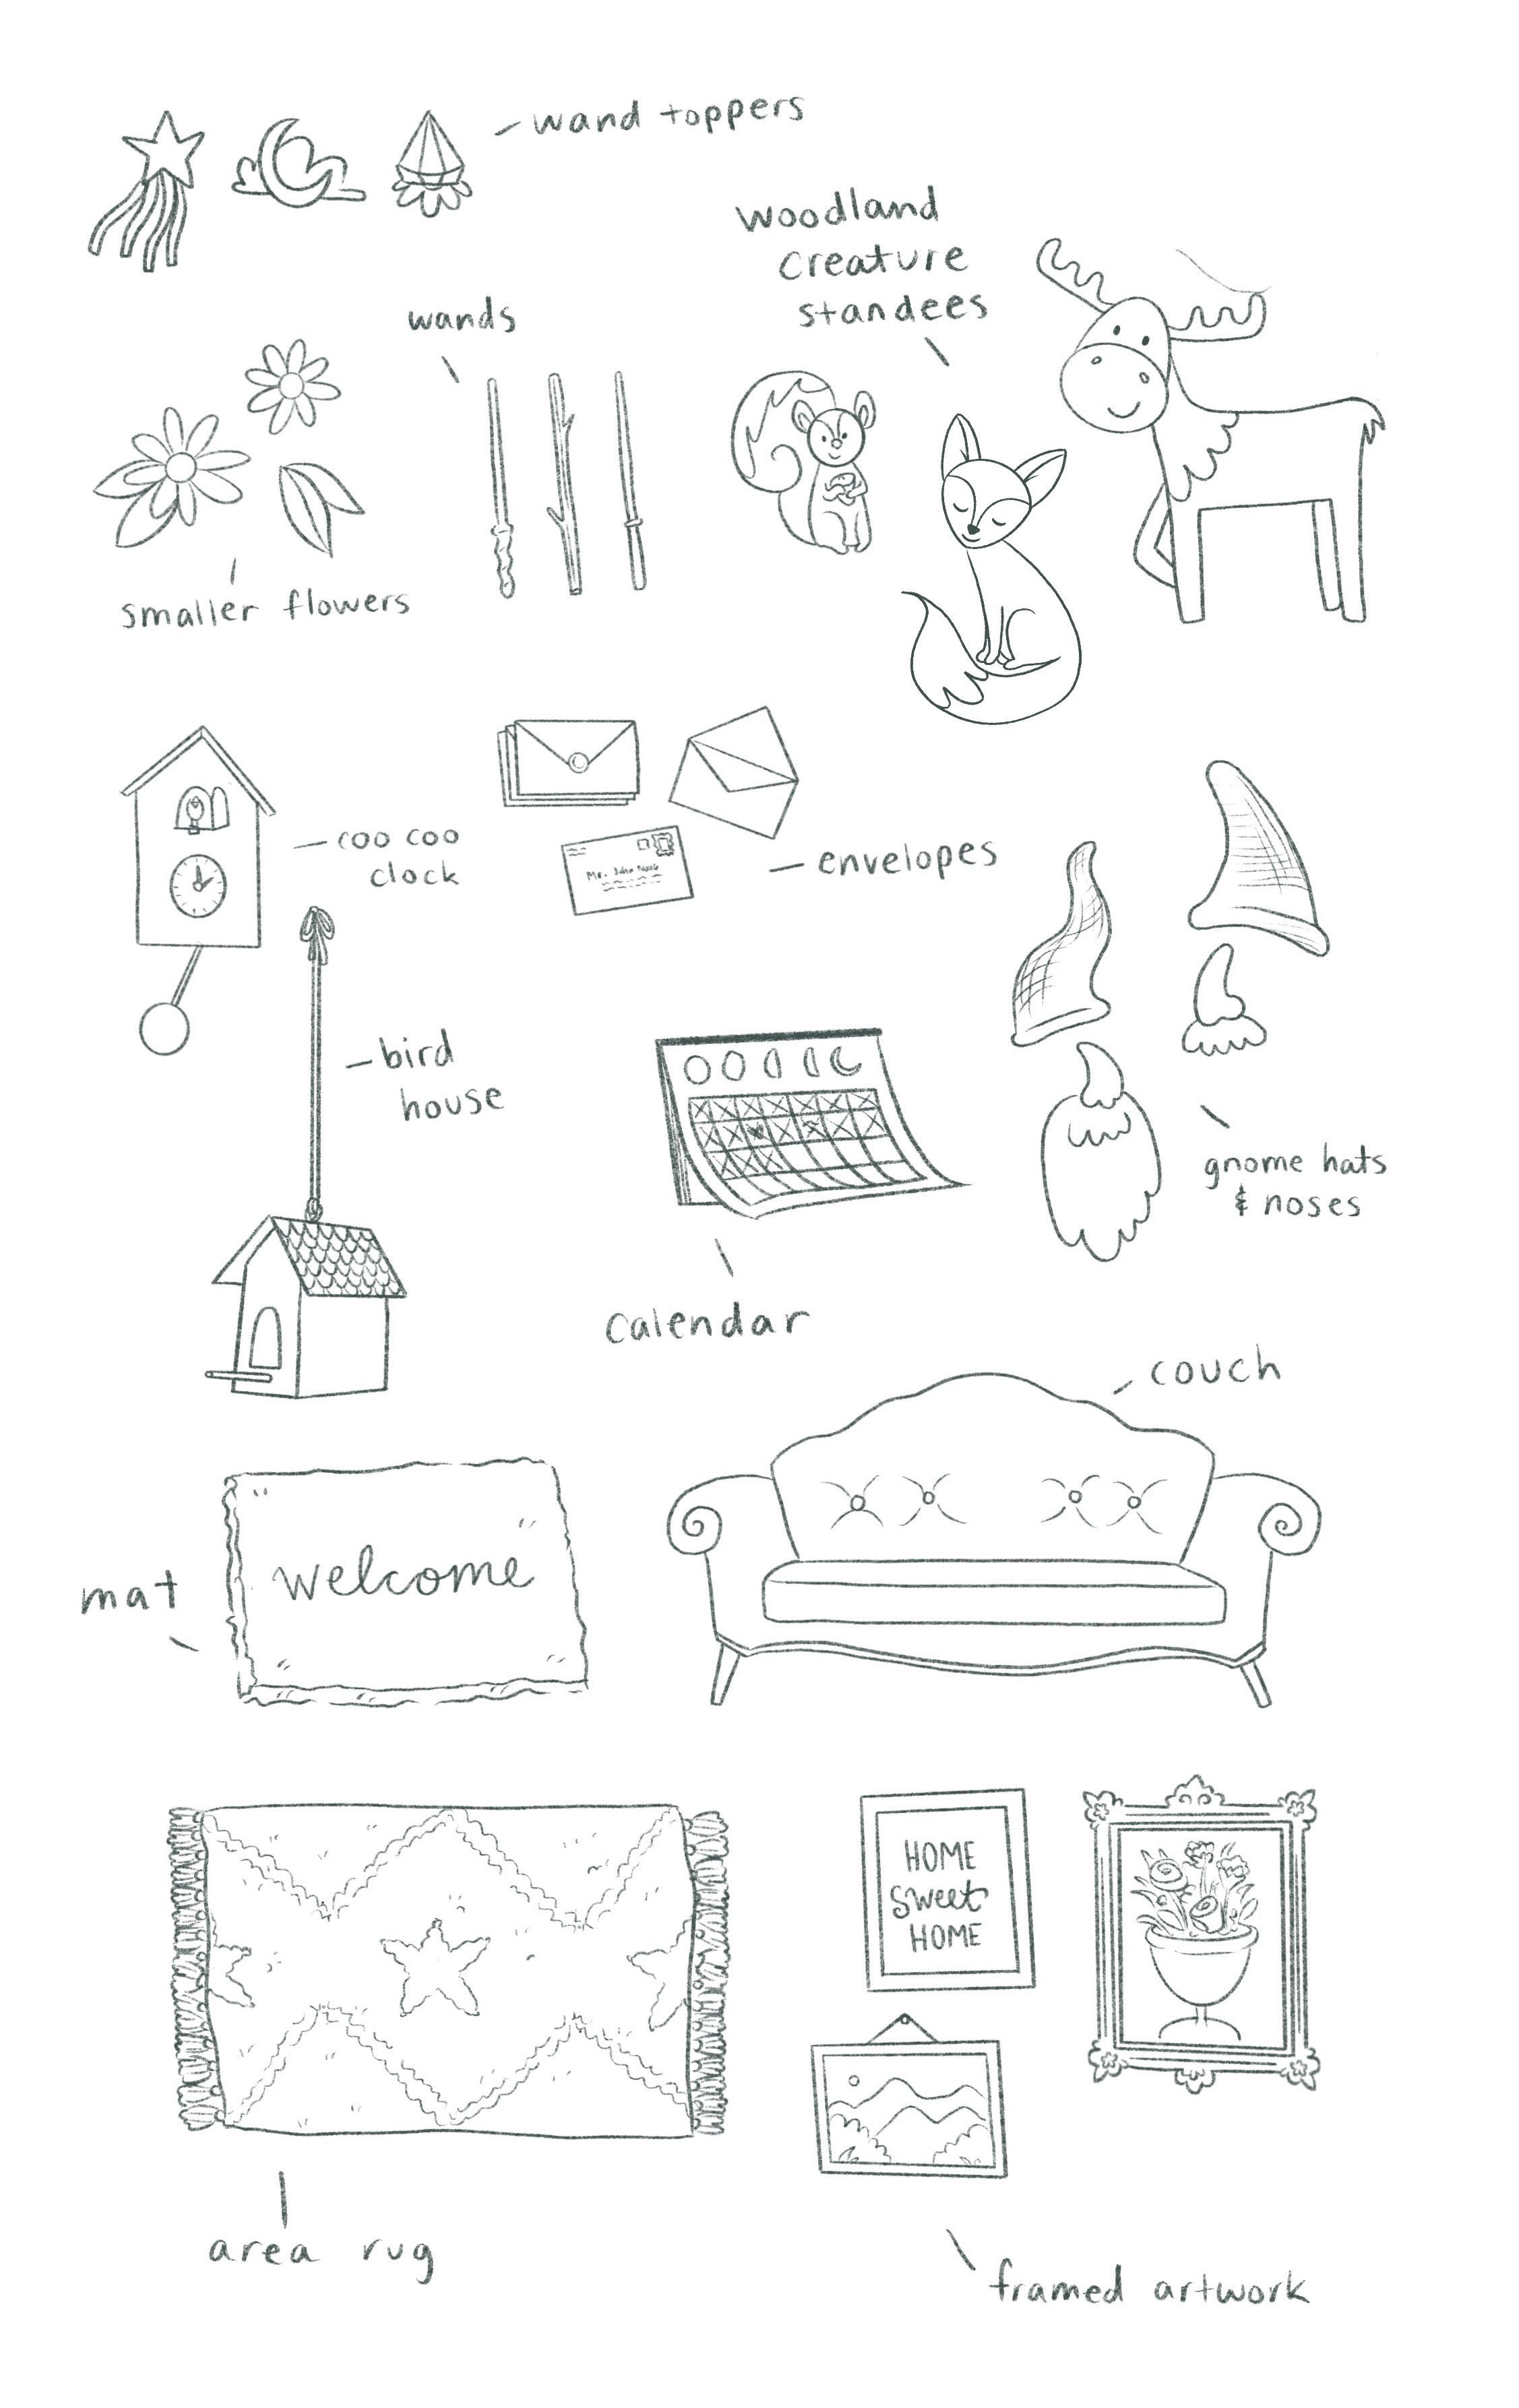 wand toppers
woodland
creature
standees
wands
smaller flowers
coo coo
clock
envelopes
Mr. John
bird
house
gnome hats
& noses
calendar
couch
mat
welcome
HOME
Sweet
HOME
area rug
framed artwork